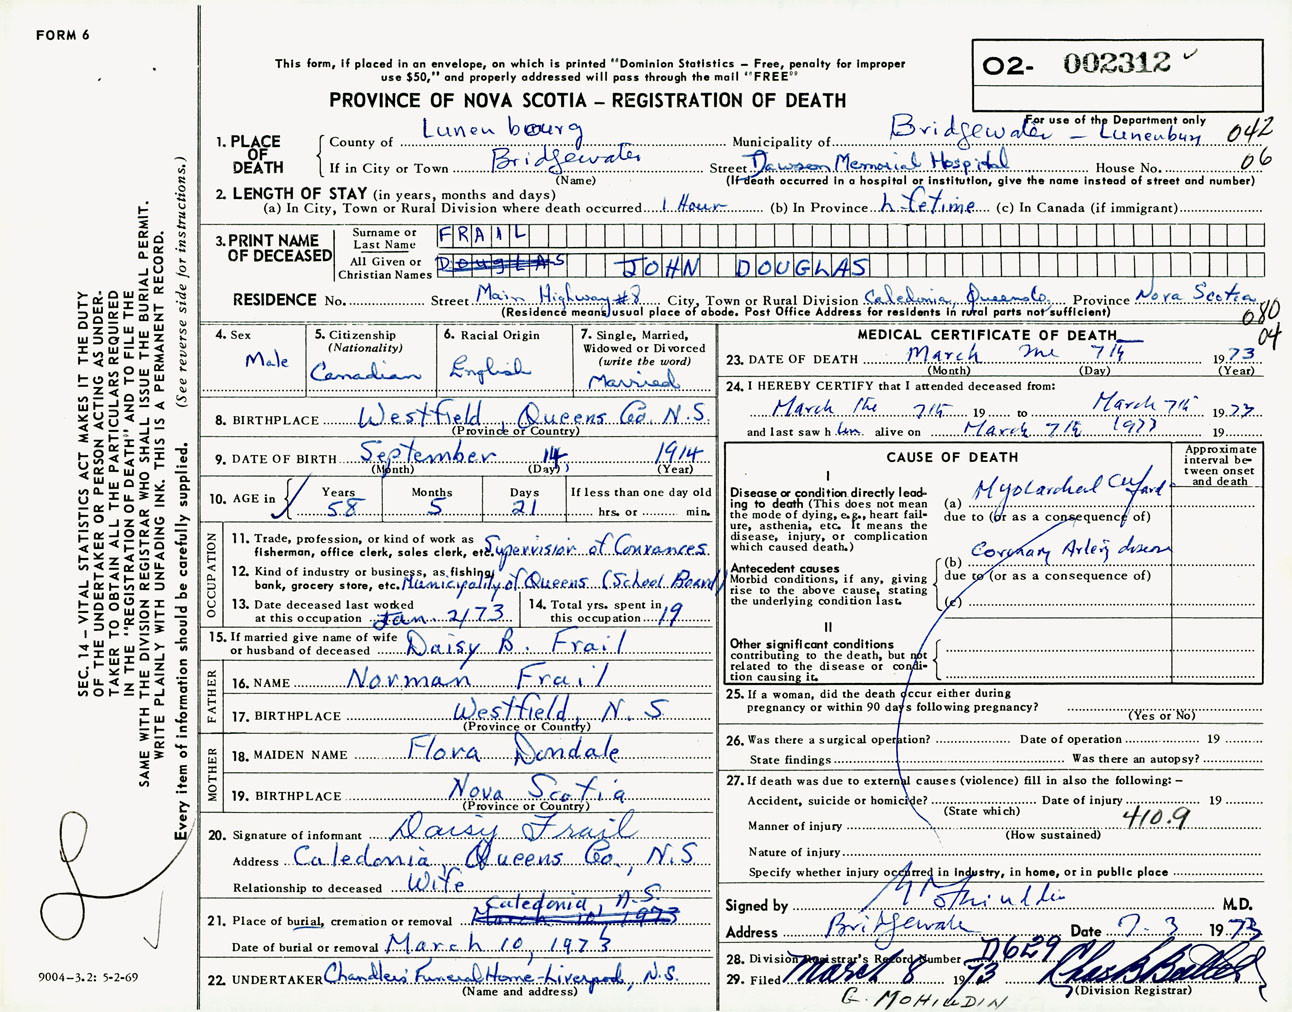 FORM 6
This form, if placed in an envelope, on which is printed "Dominion Statistics – Free, penalty for improper
use $50," and properly addressed will pass through the mail "FREE"
PROVINCE OF NOVA SCOTIA – REGISTRATION OF DEATH
02- 002312
For use of the Department only
042
06
1. PLACE OF DEATH County of Lunenbourg Municipality of Bridgewater – Lunenburg
If in City or Town Bridgewater Street Dawson Memorial Hospital House No.
(Name) (If death occurred in a hospital or institution, give the name instead of street and number)
2. LENGTH OF STAY (in years, months and days)
(a) In City, Town or Rural Division where death occurred 1 Hour (b) In Province Lifetime (c) In Canada (if immigrant)
3. PRINT NAME OF DECEASED Surname or Last Name FRAIL
All Given or Christian Names DougLAS JOHN DOUGLAS
RESIDENCE No. Street Main Highway #8 City, Town or Rural Division Caledonia, Queens Co. Province Nova Scotia
(Residence means usual place of abode. Post Office Address for residents in rural parts not sufficient)
080
04
4. Sex Male
5. Citizenship (Nationality) Canadian
6. Racial Origin English
7. Single, Married, Widowed or Divorced (write the word) Married
8. BIRTHPLACE Westfield, Queens Co. N.S.
(Province or Country)
9. DATE OF BIRTH September 14, 1914
(Month) (Day) (Year)
10. AGE in Years 58 Months 5 Days 21 If less than one day old hrs. or min.
OCCUPATION
11. Trade, profession, or kind of work as fisherman, office clerk, sales clerk, etc. Supervision of Convances
12. Kind of industry or business, as fishing, bank, grocery store, etc. Municipality of Queens (School Board)
13. Date deceased last worked at this occupation Jan. 2/73
14. Total yrs. spent in this occupation 19
15. If married give name of wife or husband of deceased Daisy B. Frail
FATHER
16. NAME Norman Frail
17. BIRTHPLACE Westfield, N.S
(Province or Country)
MOTHER
18. MAIDEN NAME Flora Dondale
19. BIRTHPLACE Nova Scotia
(Province or Country)
20. Signature of informant Daisy Frail
Address Caledonia, Queens Co, N.S
Relationship to deceased Wife
21. Place of burial, cremation or removal Caledonia, N.S.
March 10, 1973
Date of burial or removal March 10, 1973
22. UNDERTAKER Chandlers Funeral Home – Liverpool, N.S.
(Name and address)
MEDICAL CERTIFICATE OF DEATH
23. DATE OF DEATH March the 7th 1973
(Month) (Day) (Year)
24. I HEREBY CERTIFY that I attended deceased from:
March the 7th 19 to March 7th 1973
and last saw him alive on March 7th 1973 19
CAUSE OF DEATH
Approximate interval between onset and death
I
Disease or condition directly leading to death (This does not mean the mode of dying, e.g., heart failure, asthenia, etc. It means the disease, injury, or complication which caused death.)
(a) Myocardial Infarct
due to (or as a consequence of)
(b) Coronary Artery disease
due to (or as a consequence of)
(c)
Antecedent causes
Morbid conditions, if any, giving rise to the above cause, stating the underlying condition last.
II
Other significant conditions
contributing to the death, but not related to the disease or condition causing it.
25. If a woman, did the death occur either during
pregnancy or within 90 days following pregnancy?
(Yes or No)
26. Was there a surgical operation? Date of operation 19
State findings Was there an autopsy?
27. If death was due to external causes (violence) fill in also the following: –
Accident, suicide or homicide? Date of injury 19
(State which)
Manner of injury 410.9
(How sustained)
Nature of injury
Specify whether injury occurred in industry, in home, or in public place
Signed by G Mohiuddin M.D.
Address Bridgewater Date 7.3 1973
28. Division Registrar's Record Number D629
29. Filed March 8 1973 Chas B
(Division Registrar)
G. MOHIUDIN
SEC. 14 – VITAL STATISTICS ACT MAKES IT THE DUTY
OF THE UNDERTAKER OR PERSON ACTING AS UNDER-
TAKER TO OBTAIN ALL THE PARTICULARS REQUIRED
IN THE "REGISTRATION OF DEATH" AND TO FILE THE
SAME WITH THE DIVISION REGISTRAR WHO SHALL ISSUE THE BURIAL PERMIT.
WRITE PLAINLY WITH UNFADING INK. THIS IS A PERMANENT RECORD.
Every item of information should be carefully supplied. (See reverse side for instructions.)
9004-3.2: 5-2-69